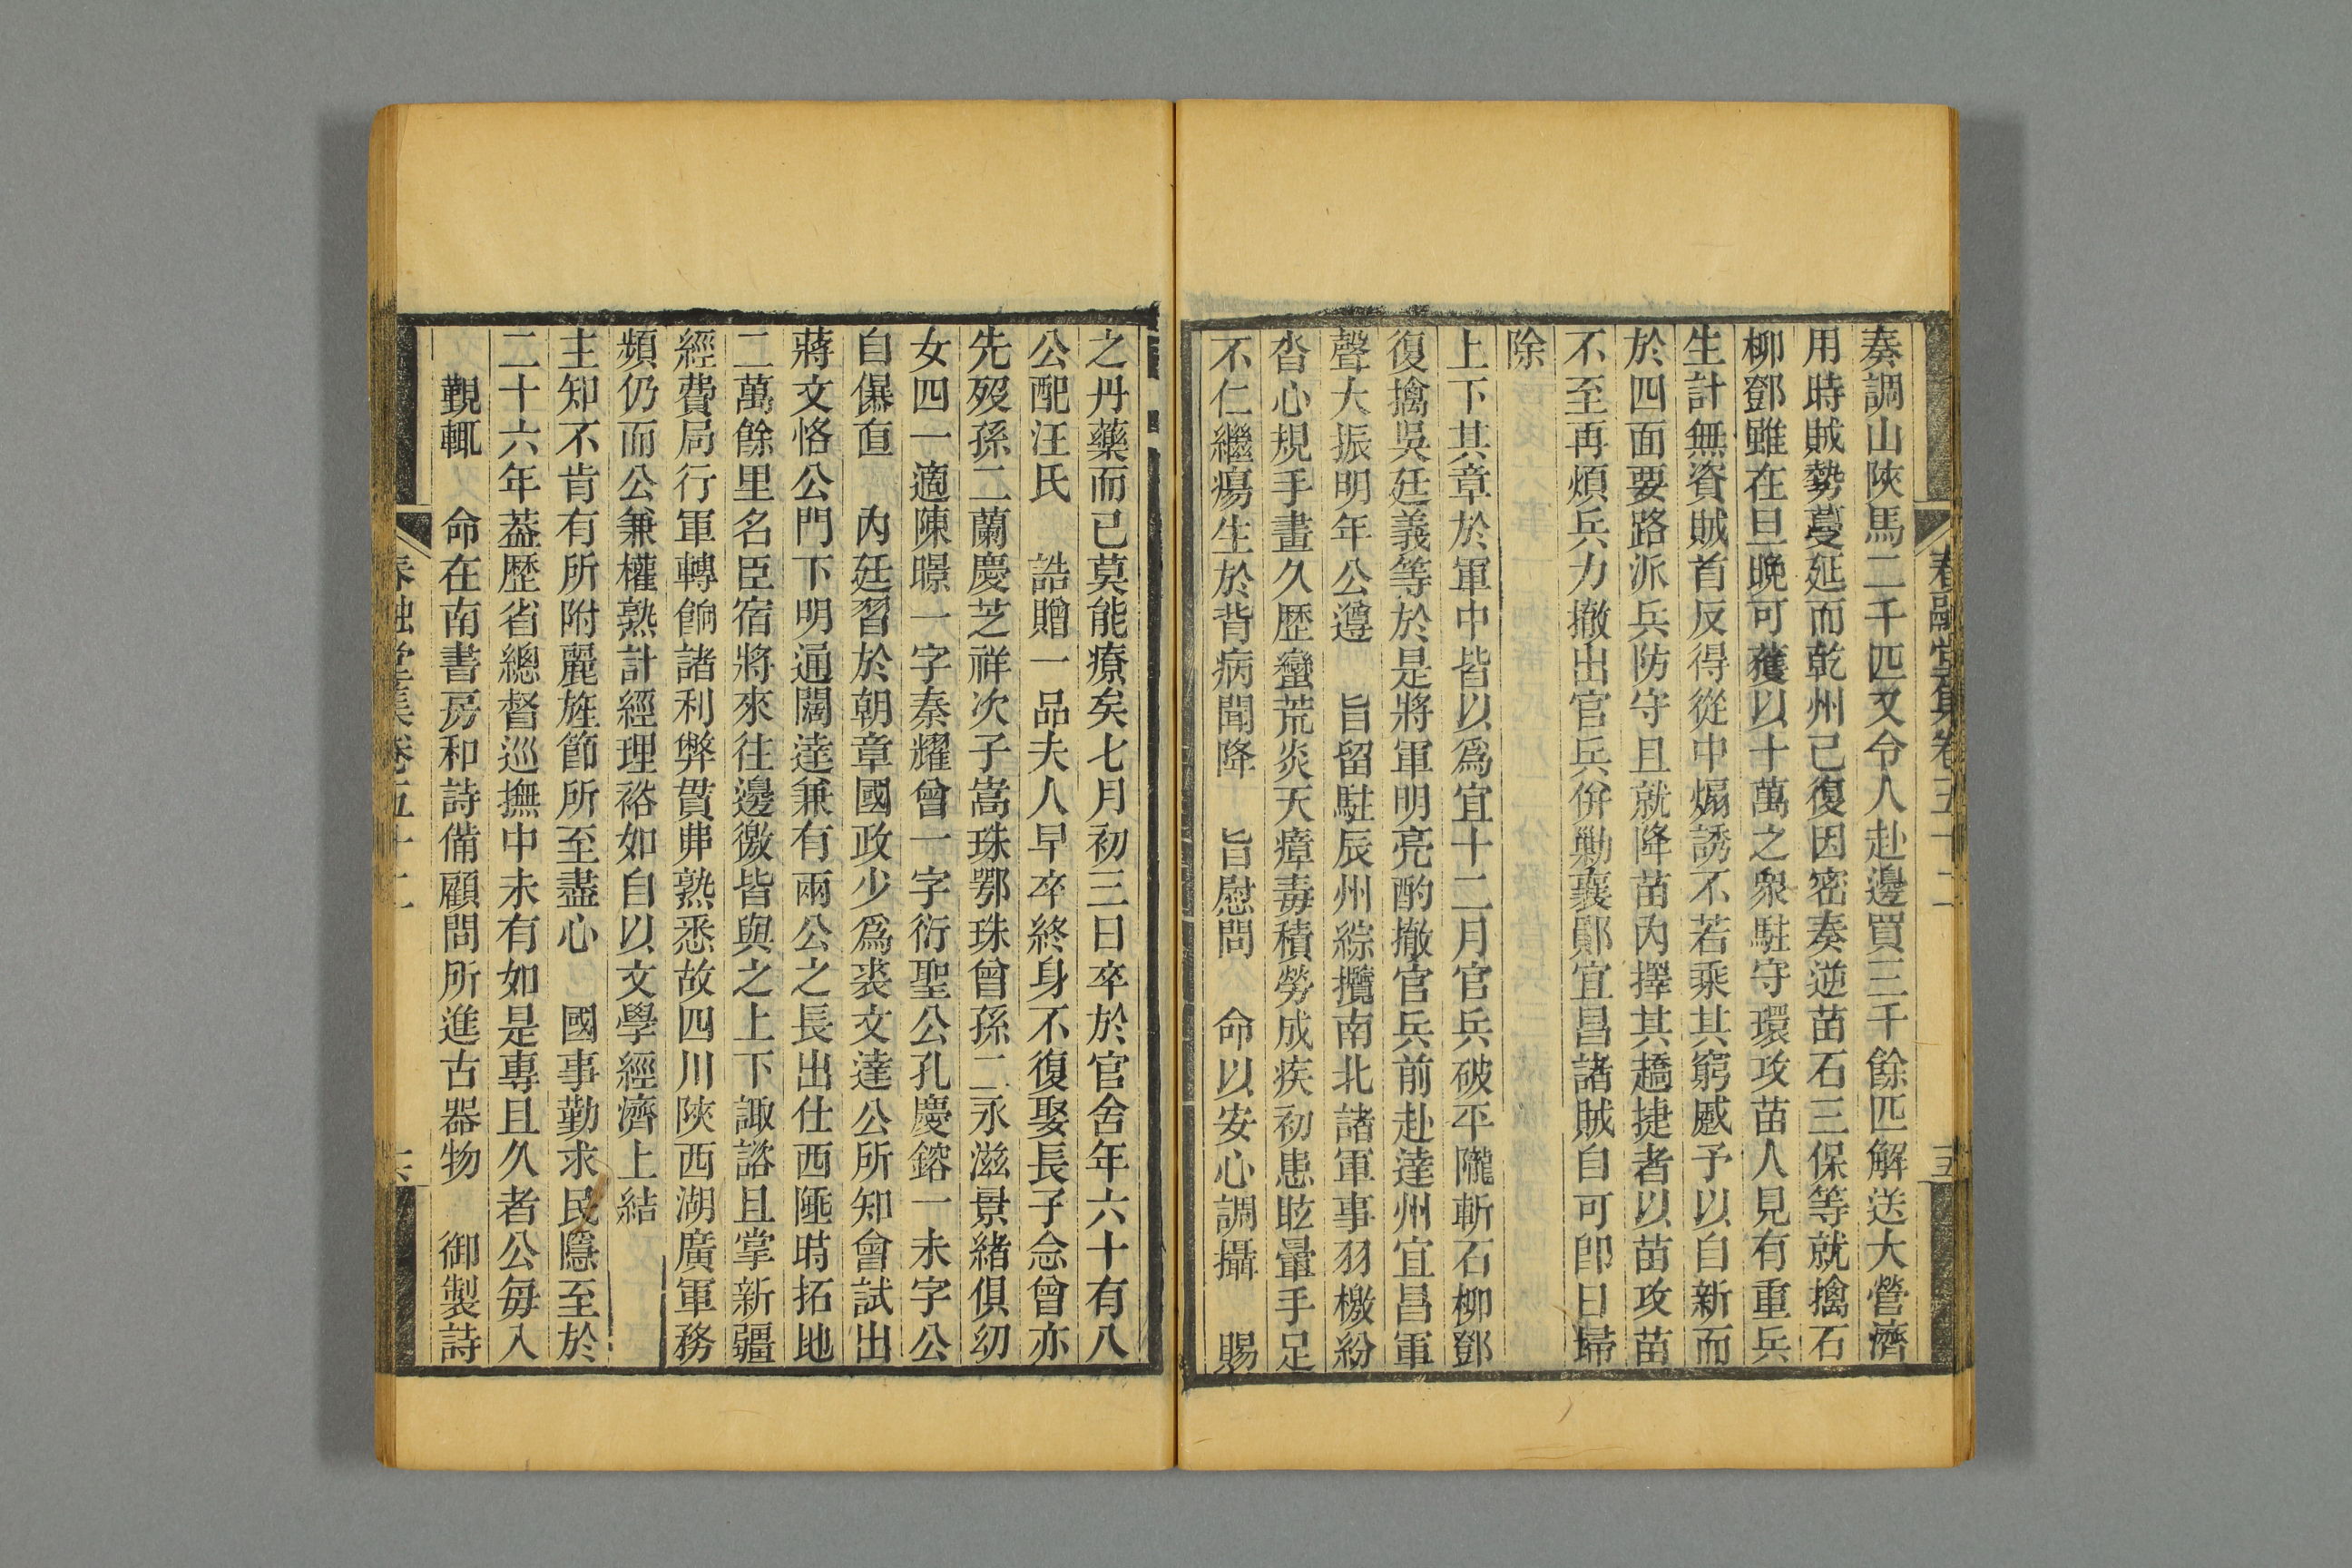 春融堂集卷五十二
五
奏調山陝馬二千匹又令人赴邊買三千餘匹解送大營濟
用時賊勢蔓延而乾州已復因密奏逆苗石三保等就擒石
柳鄧雖在旦晚可獲以十萬之衆駐守環攻苗人見有重兵
生計無資賊首反得從中煽誘不若乘其窮蹙予以自新而
於四面要路派兵防守且就降苗內擇其趫捷者以苗攻苗
不至再煩兵力撤出官兵併勦襄鄖宜昌諸賊自可卽日埽
除
上下其章於軍中皆以爲宜十二月官兵破平隴斬石柳鄧
復擒吳廷義等於是將軍明亮酌撤官兵前赴達州宜昌軍
聲大振明年公遵　旨留駐辰州綜攬南北諸軍事羽檄紛
沓心規手畫久歷蠻荒炎天瘴毒積勞成疾初患眩暈手足
不仁繼瘍生於背病聞降　旨慰問　命以安心調攝　賜
之丹藥而已莫能療矣七月初三日卒於官舍年六十有八
公配汪氏　誥贈一品夫人早卒終身不復娶長子念曾亦
先歿孫二蘭慶芝祥次子嵩珠鄂珠曾孫二永滋景緒俱幼
女四一適陳暻一字秦耀曾一字衍聖公孔慶鎔一未字公
自儤直　內廷習於朝章國政少爲裘文達公所知會試出
蔣文恪公門下明通闊達兼有兩公之長出仕西陲時拓地
二萬餘里名臣宿將來往邊徼皆與之上下諏諮且掌新疆
經費局行軍轉餉諸利弊貫弗熟悉故四川陝西湖廣軍務
頻仍而公兼權熟計經理裕如自以文學經濟上結
主知不肯有所附麗旌節所至盡心　國事勤求民隱至於
二十六年葢歷省總督巡撫中未有如是專且久者公每入
覲輒　命在南書房和詩備顧問所進古器物　御製詩
春融堂集卷五十二
六